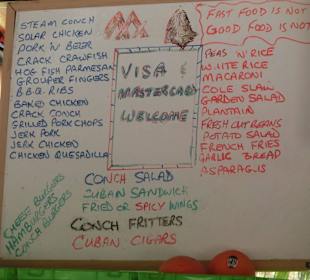 FAST FOOD IS NOT
GOOD FOOD IS NOT
STEAM CONCH
SOLAR CHICKEN
PORK 'N BEER
CRACK CRAWFISH
HOG FISH PARMESAN
GROUPER FINGERS
B.B.Q. RIBS
BAKED CHICKEN
CRACK CONCH
GRILLED PORK CHOPS
JERK PORK
JERK CHICKEN
CHICKEN QUESADILLA
VISA &
MASTERCARD
WELCOME
PEAS N' RICE
WHITE RICE
MACARONI
COLE SLAW
GARDEN SALAD
PLANTAIN
FRESH CUT BEANS
POTATO SALAD
FRENCH FRIES
GARLIC BREAD
ASPARAGUS
CHEESE BURGERS
HAMBURGERS
CONCH BURGERS
CONCH SALAD
CUBAN SANDWICH
FRIED OR SPICY WINGS
CONCH FRITTERS
CUBAN CIGARS